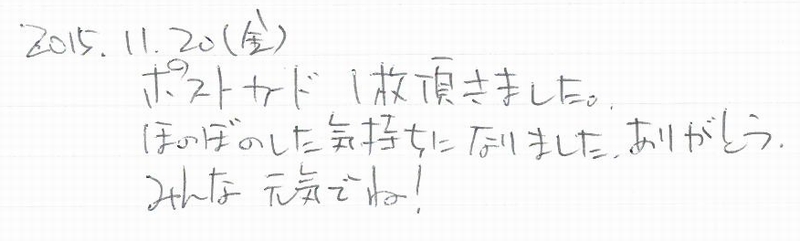 2015.11.20(金)
ポストカード 1枚頂きました。
ほのぼのした気持ちになりました。ありがとう.
みんな 元気でね!